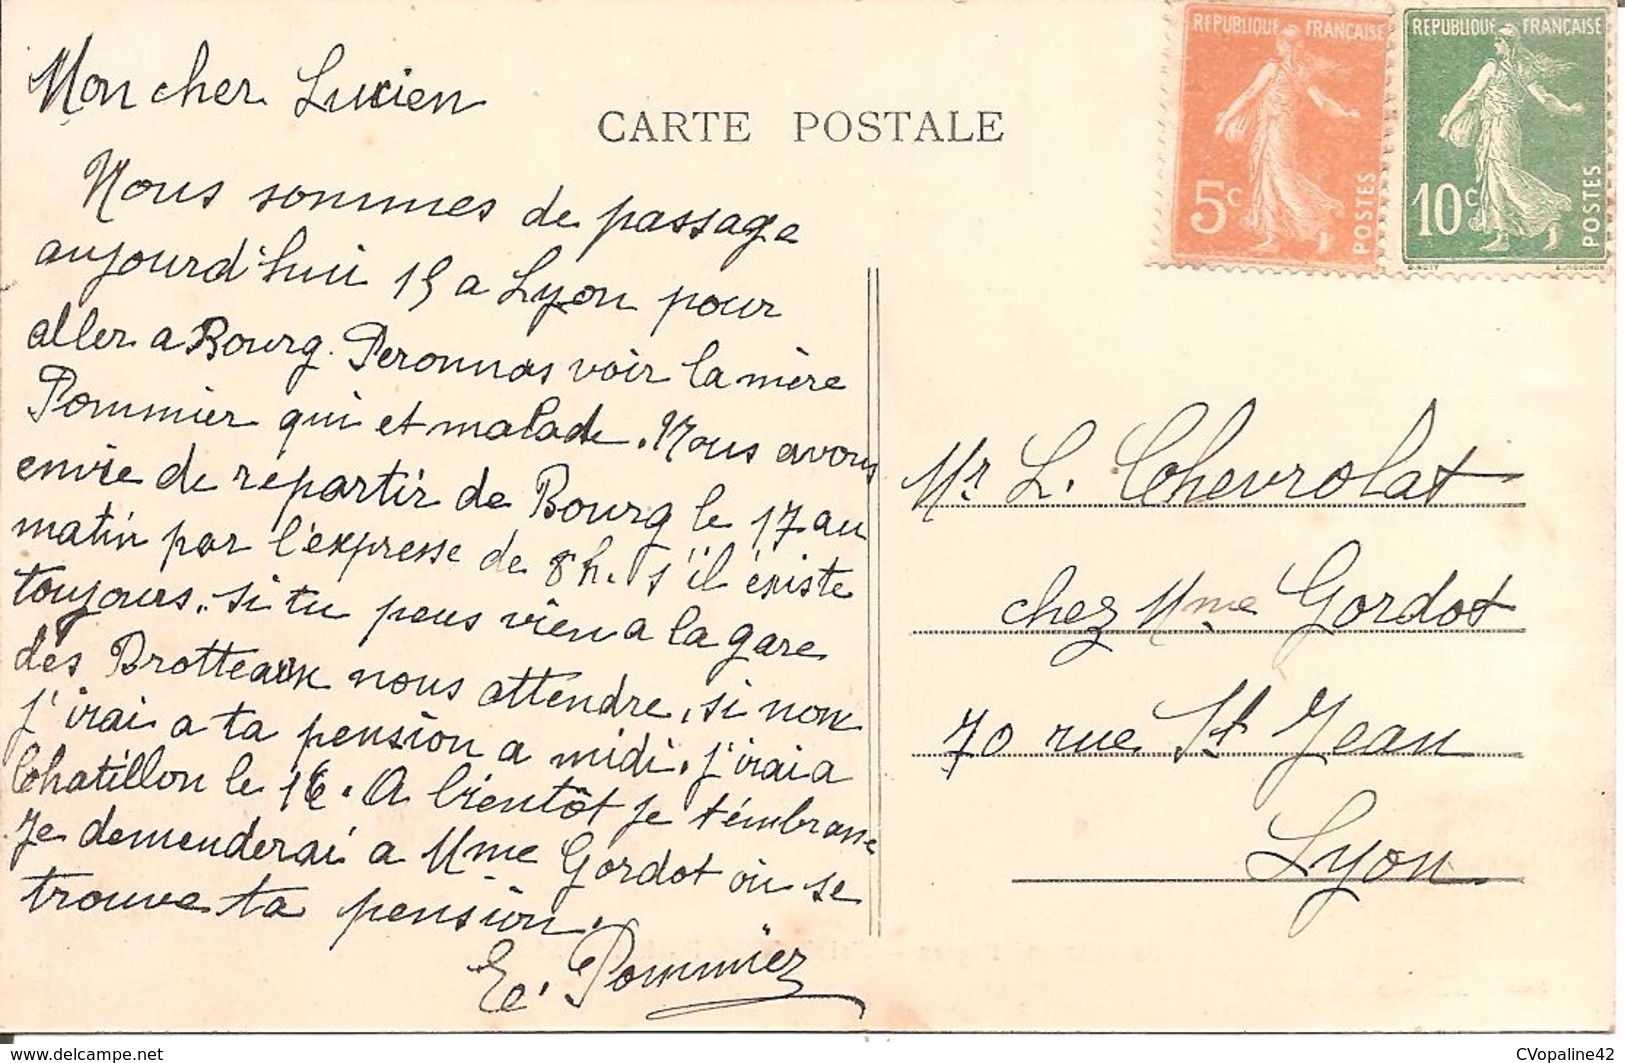 Mon cher Lucien
CARTE POSTALE
REPUBLIQUE FRANÇAISE
5c
POSTES
REPUBLIQUE FRANÇAISE
10c
POSTES
Nous sommes de passage
aujourd'hui 15 a Lyon pour
aller a Bourg. Peronnas voir la mère
Pommier qui et malade. Nous avons
envie de repartir de Bourg le 17 au
matin par l'expresse de 8h. s'il éxiste
toujours. si tu peus vien a la gare
des Brotteaux nous attendre, si non
j'irai a ta pension a midi. j'irai a
Chatillon le 16. A bientôt je t'émbrasse
Je demenderai a Mme Gordot où se
trouve ta pension.
E. Pommier
Mr L. Chevrolat
chez Mme Gordot
70 rue St Jean
Lyon
www.delcampe.net
CVopaline42